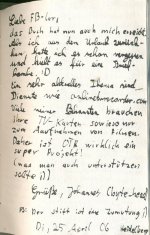 Liebe FB-lers,
das Buch hat nun auch mich erreicht,
die ich aus dem Urlaub zurück-
kam. Hatte ich es schon vergessen
und hielt es für eine Brief-
bombe ;D
Ein sehr aktuelles Thema sind
Dienste wie onlinetvrecorder.com
Viele meiner Bekannten brauchen
Ihre TV-Karten sowieso nur
zum Aufnehmen von Filmen.
Daher ist OTR wirklich ein
super Projekt!
(das man auch unterstützen
sollte :))
Grüße, Johannes
PS: Der Stift ist eine Zumutung !)
Di, 25. April 06 Heidelberg